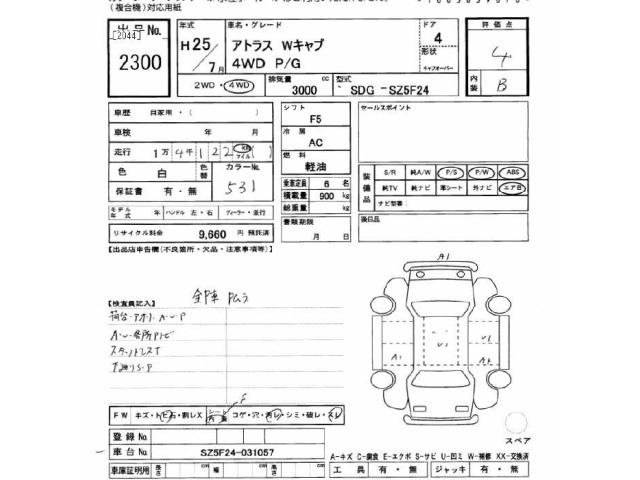 (複合機)対応用紙
出品No.
[2044]
2300
年式
H25/7月
車名・グレード
アトラス Wキャブ
4WD P/G
ドア
4
形状
キャブオーバー
評価点
4
内装
B
2WD・4WD
排気量
3000 cc
型式
SDG-SZ5F24
車歴 自家用・( )
車検 年 月
走行 1万4千122 km マイル ( )
色 白
色替
カラーNo.
531
保証書 有・無
モデル年式 年
ハンドル 左・右
ディーラー・並行
リサイクル料金 9,660 円 預託済
【出品店申告欄(不良箇所・欠品・注意事項等)】
シフト
F5
冷房
AC
燃料
軽油
乗車定員 6 名
積載量 900 kg
総重量 kg
書類期限
月 日
セールスポイント
装備品
S/R 純A/W P/S P/W ABS
純TV 純ナビ 革シート 外ナビ エアB
ナビ型番:
後日品
【検査員記入】
全下車 PAムラ
A-W-P
S-P
A1
U1
A1
FW キズ・トビ石・割レX シート 内張 コゲ・穴・汚レ・シミ・破レ・スレ
F
登録No.
車台No. SZ5F24-031057
車庫証明用 長さ cm 幅 cm 高さ cm
スペア
A-キズ C-腐食 E-エクボ S-サビ U-凹ミ W-補修 XX-交換済
工具 有・無 ジャッキ 有・無